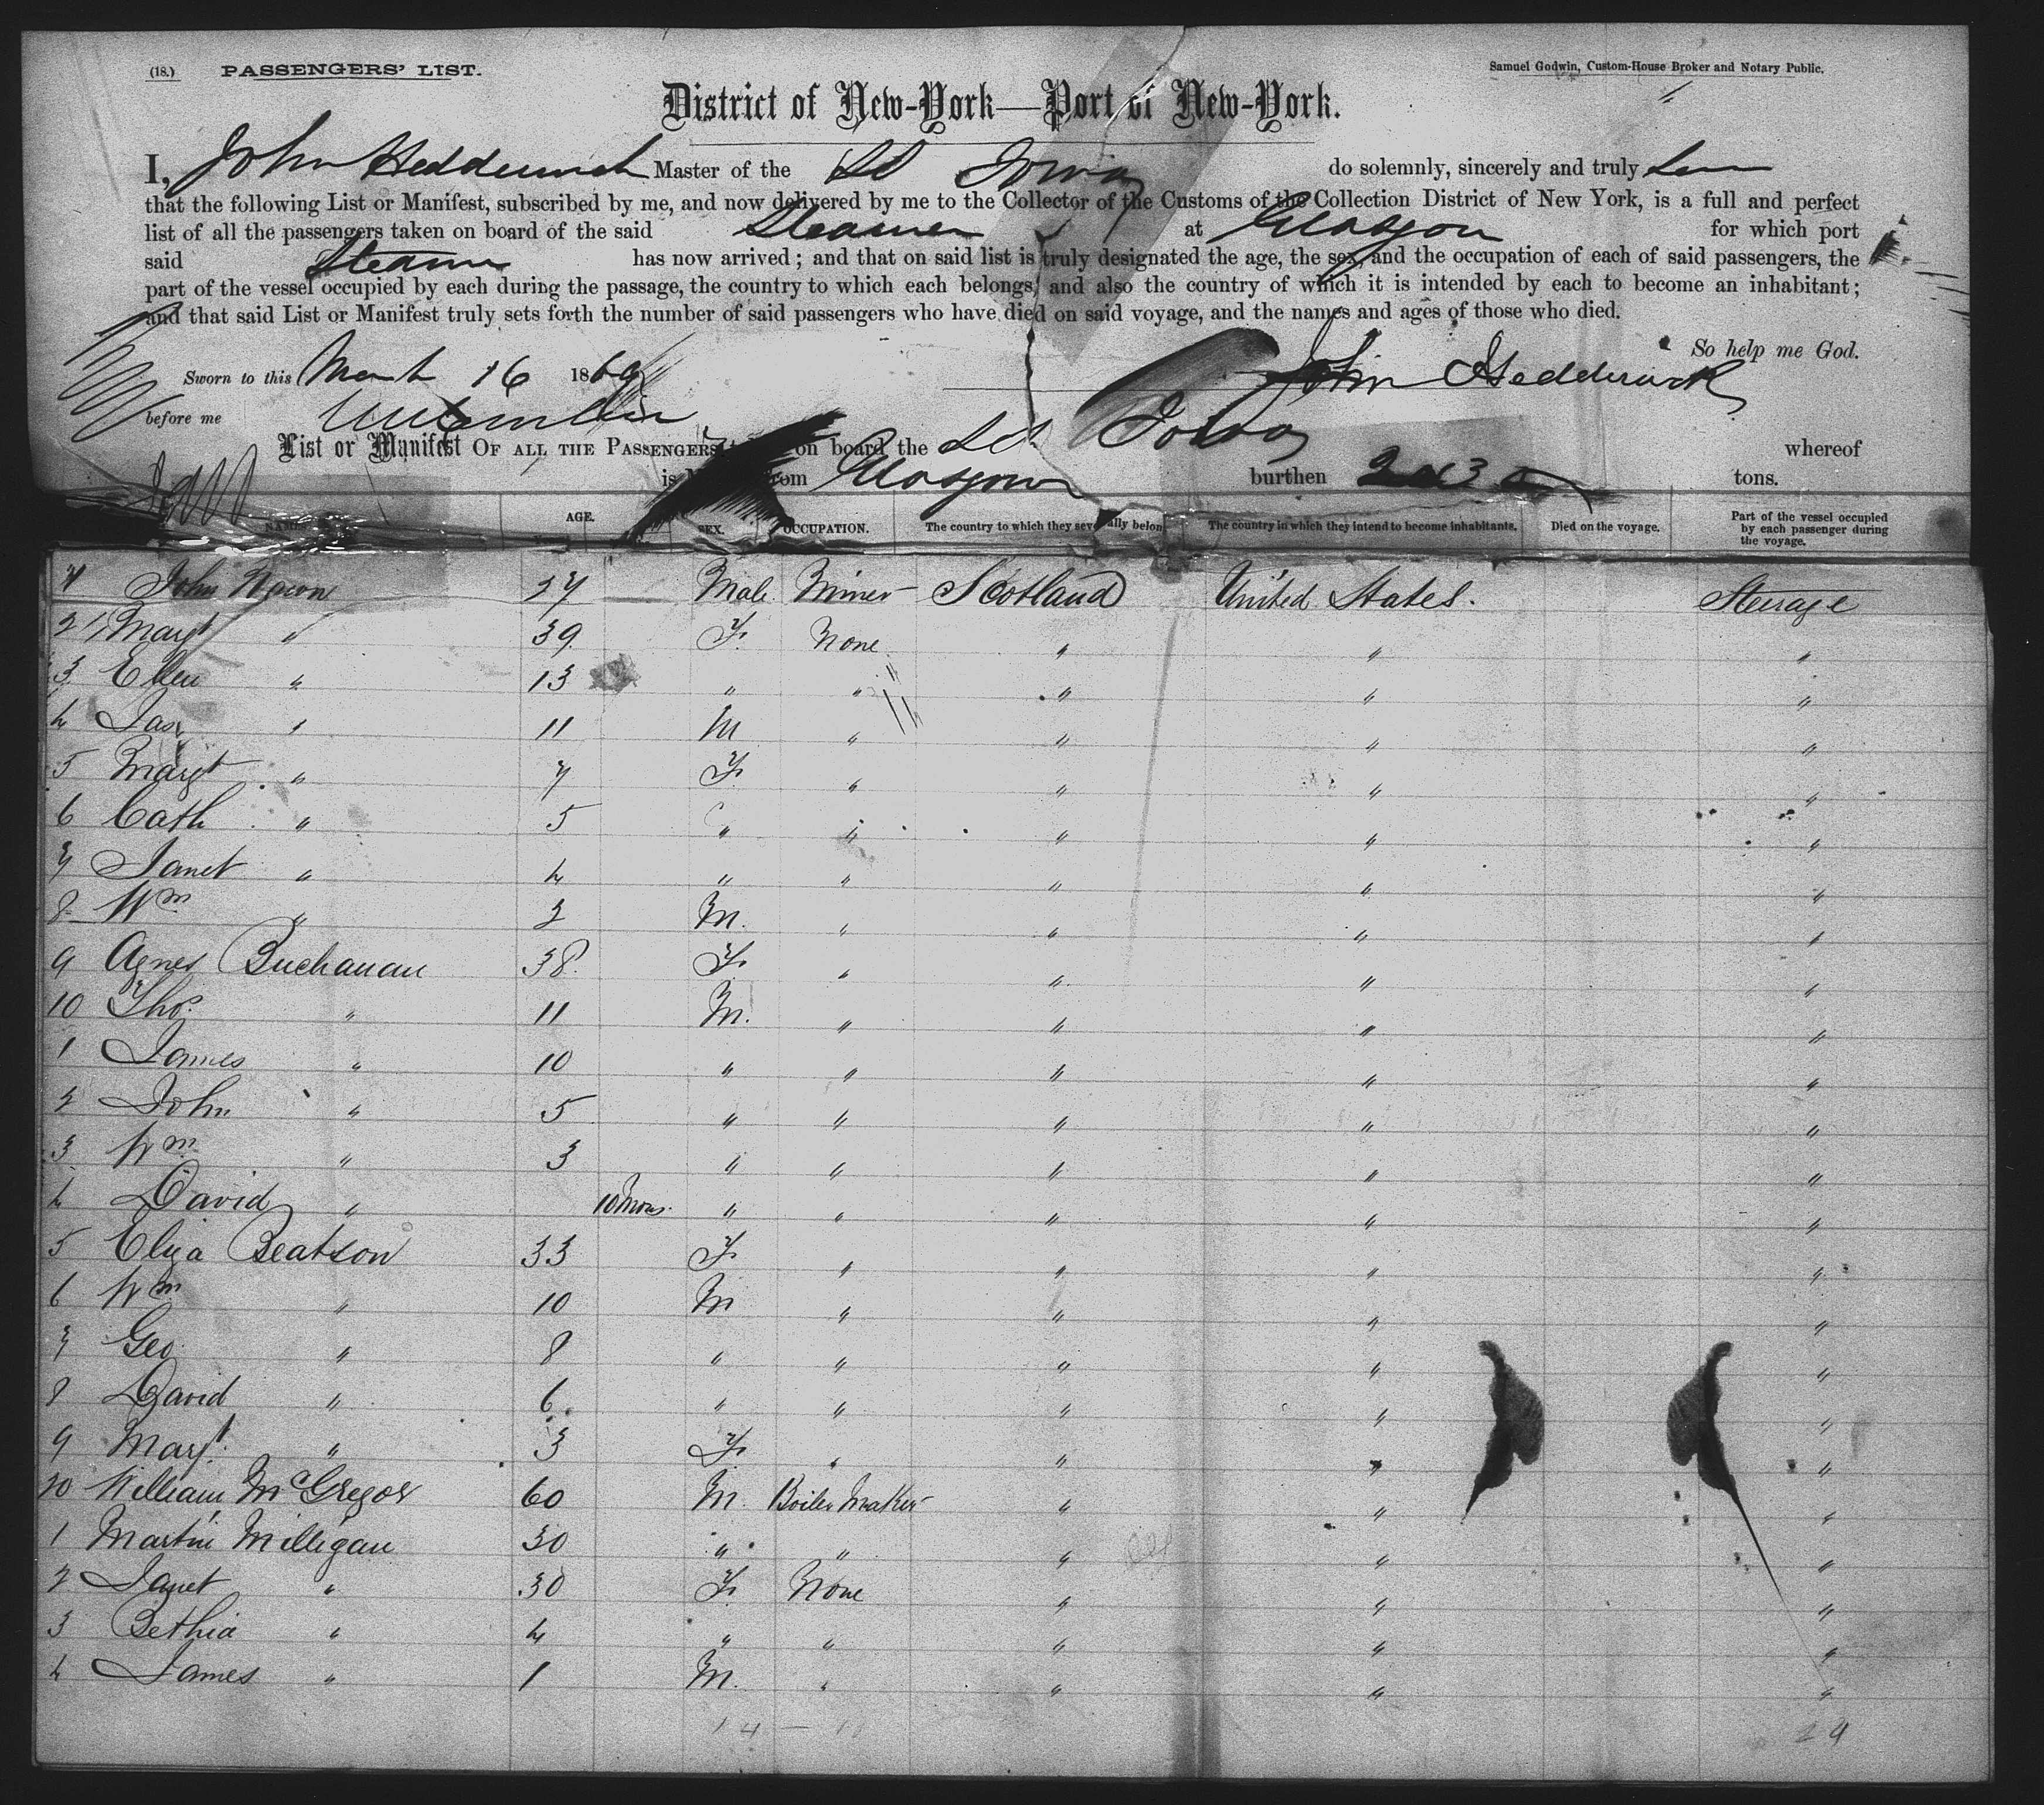 (18.) PASSENGERS' LIST. Samuel Godwin, Custom-House Broker and Notary Public.
District of New-York—Port of New-York.
I, John Hedderwick Master of the SS Iowa do solemnly, sincerely and truly
that the following List or Manifest, subscribed by me, and now delivered by me to the Collector of the Customs of the Collection District of New York, is a full and perfect
list of all the passengers taken on board of the said Steamer at Glasgow for which port
said Steamer has now arrived; and that on said list is truly designated the age, the sex, and the occupation of each of said passengers, the
part of the vessel occupied by each during the passage, the country to which each belongs, and also the country of which it is intended by each to become an inhabitant;
and that said List or Manifest truly sets forth the number of said passengers who have died on said voyage, and the names and ages of those who died.
So help me God.
Sworn to this March 16 1869 John Hedderwick
before me
List or Manifest OF ALL THE PASSENGERS on board the SS Iowa whereof
is from Glasgow burthen tons.
NAMES AGE. SEX. OCCUPATION. The country to which they severally belon The country in which they intend to become inhabitants. Died on the voyage. Part of the vessel occupied by each passenger during the voyage.
John 27 Male Miner Scotland United States. Steerage
2 Margt " 39 F. None " " "
3 Ellen " 13 " " " " "
4 Jas " 11 M " " " "
5 Margt " 7 F. " " " "
6 Cath " 5 " " " " "
7 Janet " 4 " " " " "
8 Wm " 2 M. " " " "
9 Agnes Buchanan 38. F. " " " "
10 Thos. " 11 M. " " " "
1 James " 10 " " " " "
2 John " 5 " " " " "
3 Wm " 3 " " " " "
4 David " 10 Mos. " " " " "
5 Eliza Beatson 33 F. " " " "
6 Wm " 10 M " " " "
7 Geo " 8 " " " " "
8 David " 6 " " " " "
9 Margt. " 3 F. " " " "
20 William McGregor 60 M. Boiler Maker " " "
1 Martin Milligan 30 " " " " "
2 Janet " 30 F. None " " "
3 Bethia " 4 " " " " "
4 James " 1 M. " " " "
14 — 24